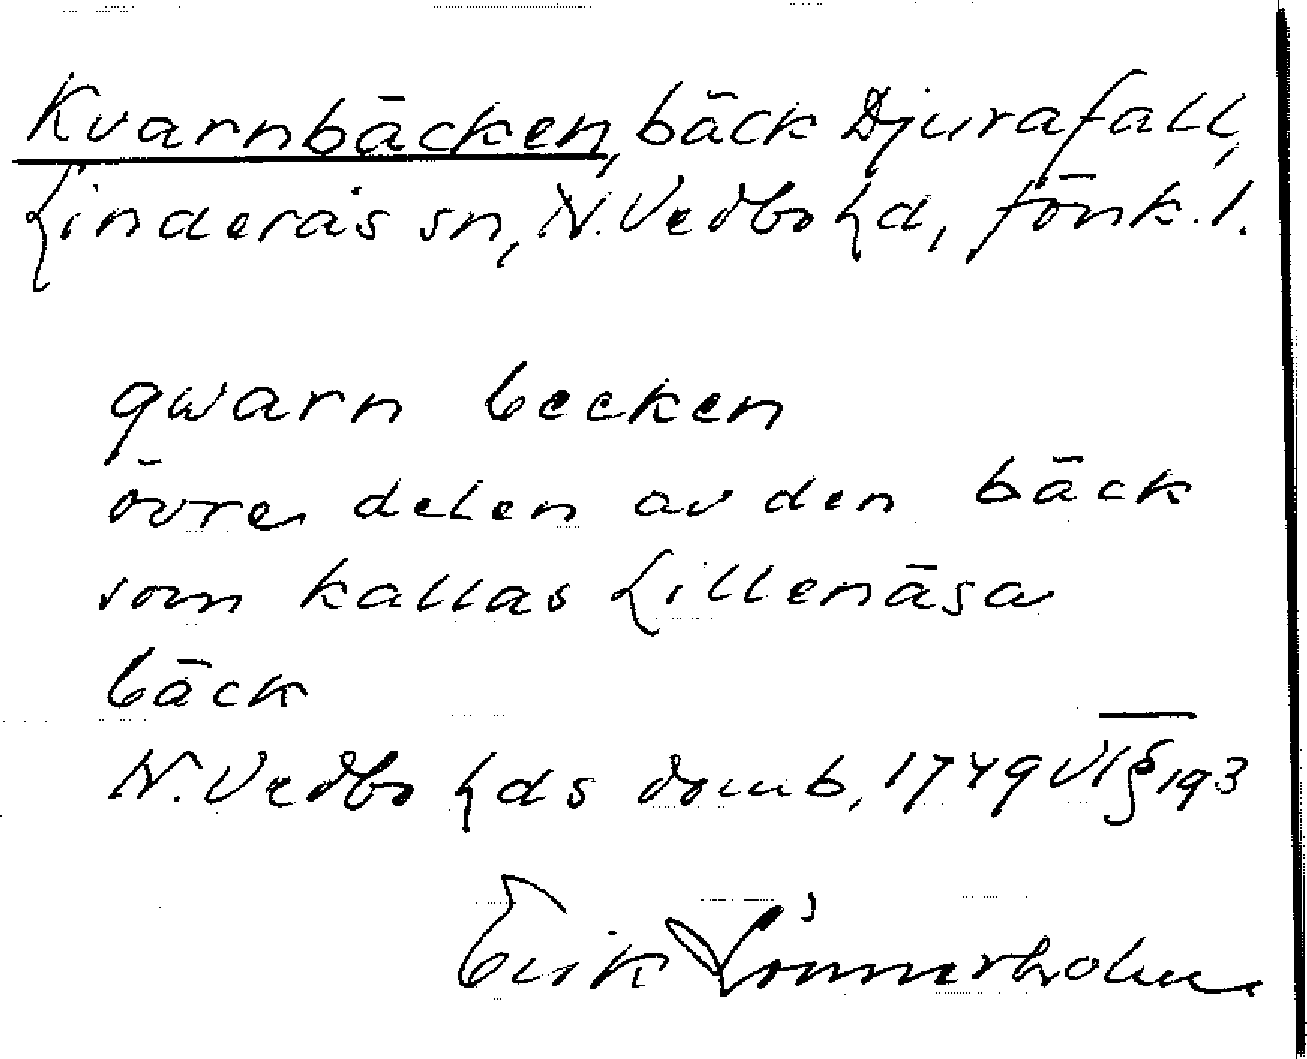 Kvarnbäcken, bäck Djurafall,
Linderås sn, N. Vedbo hd, Jönk. l.
qwarn becken
övre delen av den bäck
som kallas Lillenäsa
bäck
N. Vedbo hds domb. 1749 VI § 193
Erik Lönnerholm